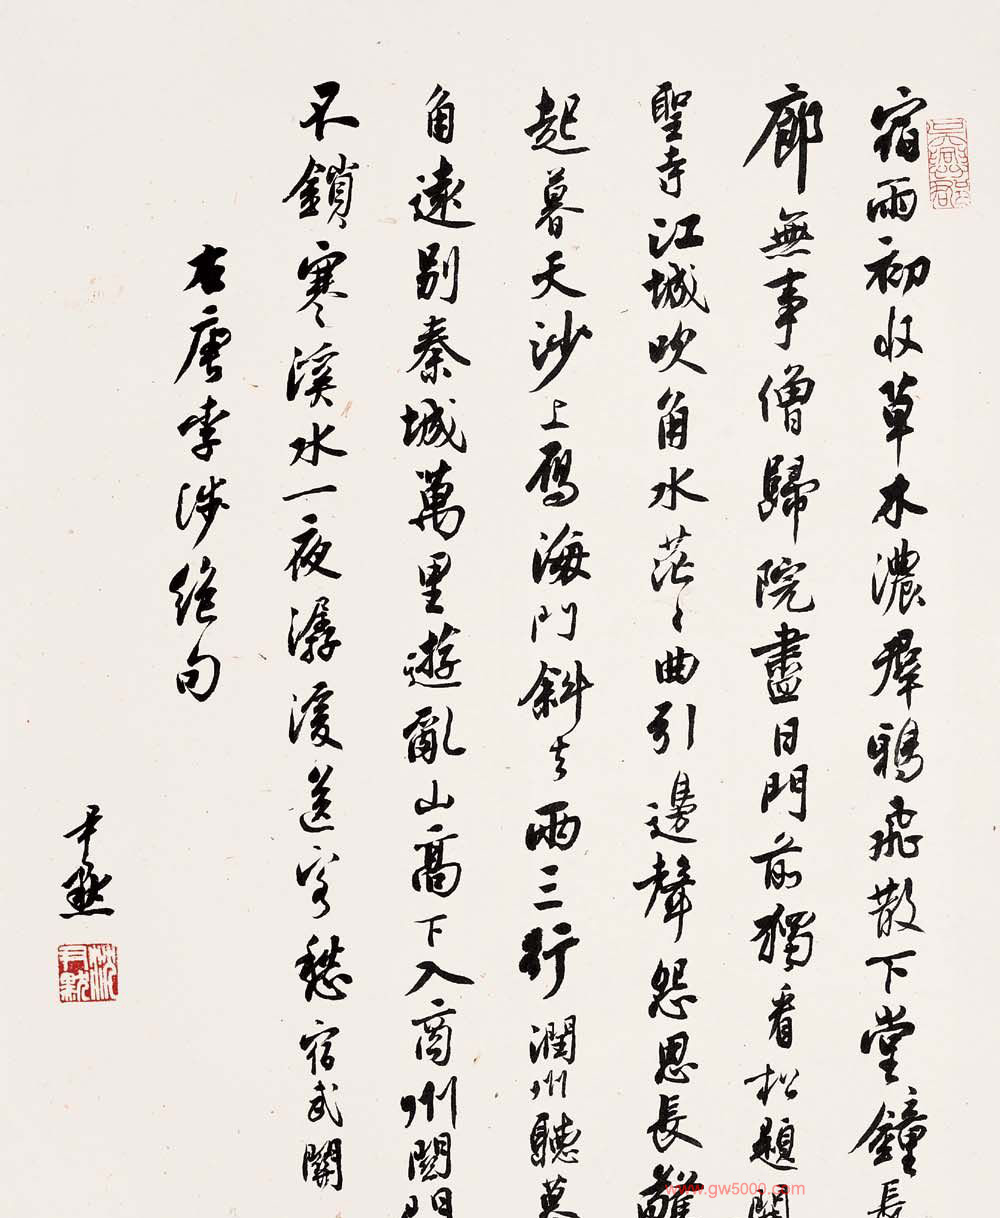 宿雨初收草木濃羣鴉飛散下堂鐘長
廊無事僧歸院盡日門前獨看松題開
聖寺江城吹角水茫〻曲引邊聲怨思長
起暮天沙上雁海門斜去兩三行潤州聽暮
角遠別秦城萬里遊亂山高下入商州關門
不鎖寒溪水一夜潺湲送客愁宿武關
右唐李涉絕句
尹默
沈尹默
www.gw5000.com